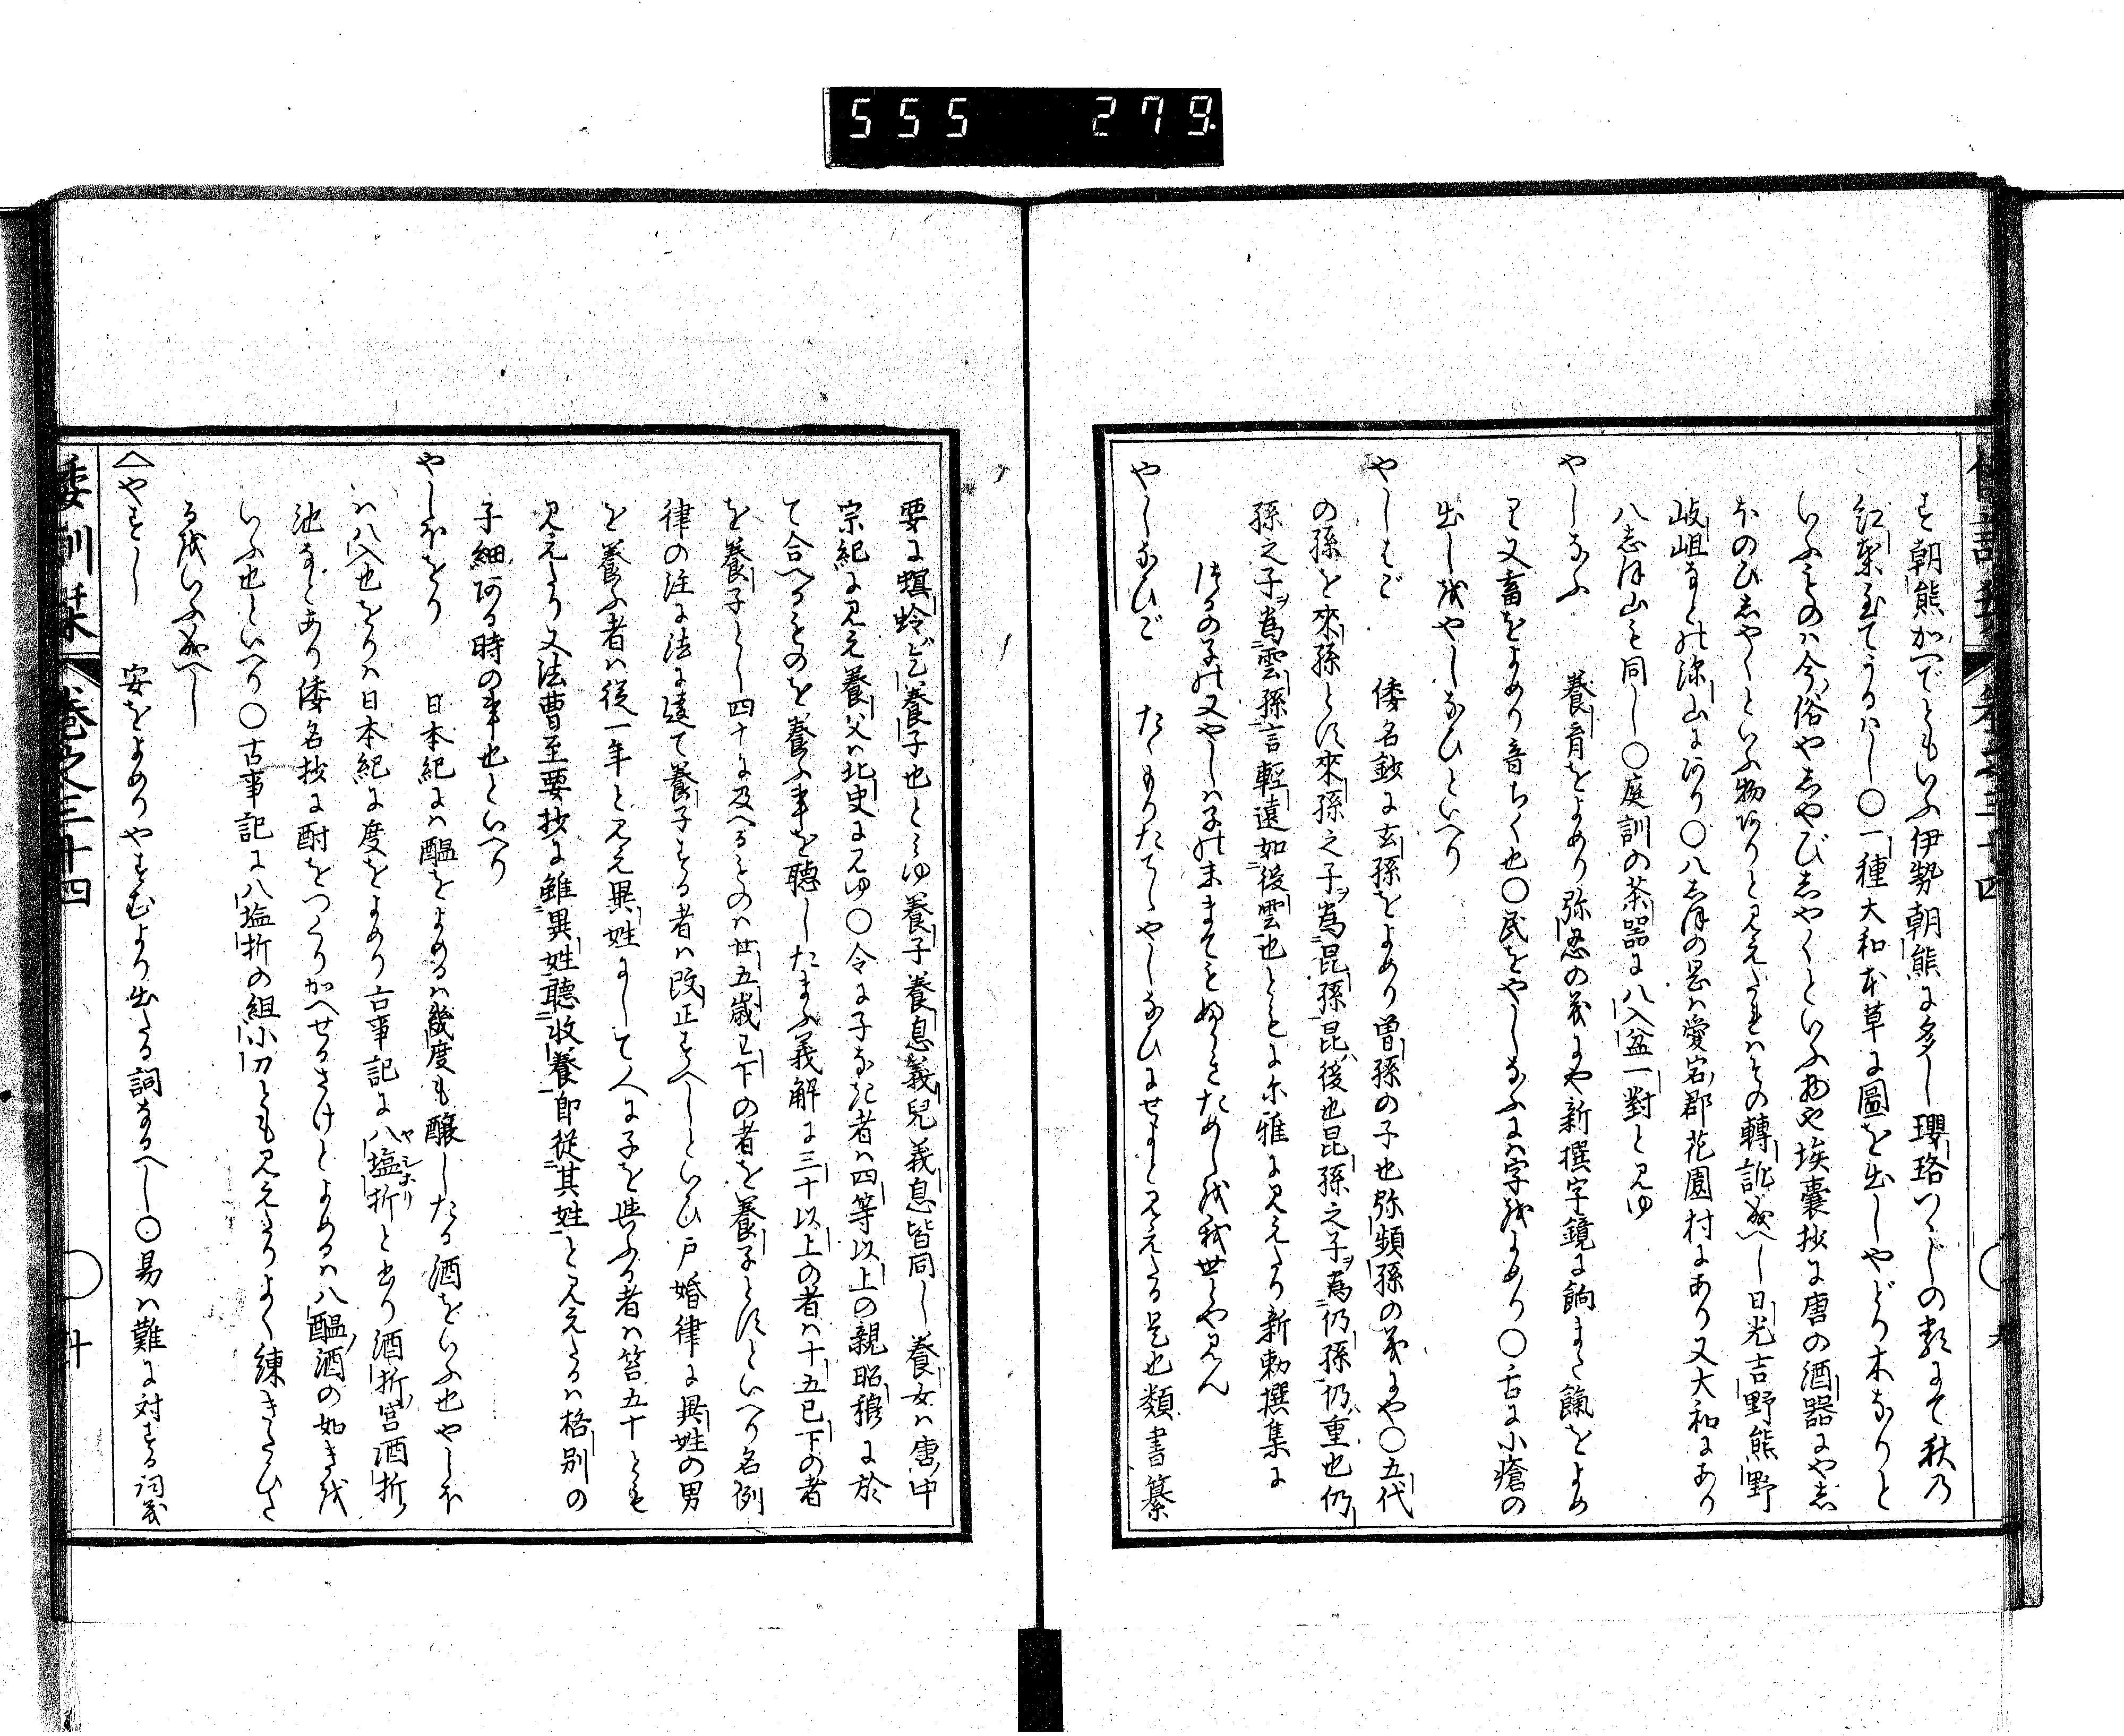 555 279
す朝熊がへでともいふ伊勢朝熊に多し瓔珞つゝじの類にて秋乃
紅葉至てうるハし〇一種大和本草に圖を出しやどり木なりと
いふものハ今俗やしやびしやくといふ物や埃嚢抄に唐の酒器にやし
ほのひしやくといふ物ありと見えたれハその轉訛成へし日光吉野熊野
岐岨なとの深山にあり〇八しほの岡ハ愛宕郡花園村にあり又大和にあり
八しほ山も同し〇庭訓の茶器に八入盆一對と見ゆ
やしなふ 養育をよめり弥忍の義にや新撰字鏡に餉また餼をよめ
り又畜をよめり音ちく也〇民をやしなふにハ字をよめり〇舌に小瘡の
出しをやしなひといへり
やしはご 倭名鈔に玄孫をよめり曽孫の子也弥顰孫の義にや〇五代
の孫を來孫とす來孫之子ヲ為昆孫昆ハ後也昆孫之子ヲ為仍孫仍ハ重也仍
孫之子ヲ為雲孫言輕遠如後雲也ともに尓雅に見えたり新勅撰集に
つるの子の又やしハ子の末まてもふるきためしを我世とや見ん
やしなひご たゝありたてゝやしなひにせまと見えたる是也類書纂
要に螟蛉ハ乞養子也とミゆ養子養息義兒義息皆同し養女ハ唐ノ中
宗紀に見え養父ハ北史に見ゆ〇令に子なき者ハ四等以上の親昭穆に於
て合へるものを養ふ事を聴したまふ義解に三十以上の者ハ十五已下の者
を養子とし四十に及へるものハ廿五歳已下の者を養子とすといへり名例
律の注に法に違て養子する者ハ改正すへしといひ戸婚律に異姓の男
を養ふ者ハ徒一年と見え異姓にして人に子を與ふる者ハ笞五十とも
見えたり又法曹至要抄に雖異姓聴收養即從其姓と見えたるハ格別の
子細ある時の事也といへり
やしほをり 日本紀にハ醞をよめるハ幾度も醸したる酒をいふ也やしほ
ハ八入也をりハ日本紀に度をよめり古事記に八塩折ヤシホヲリと出り酒折ノ宮酒折ノ
池なとあり倭名抄に酎をつくりかへせるさけとよめるハ八醞ノ酒の如きを
いふ也といへり〇古事記に八塩折の組小刀とも見えたりよく練きたひた
るをいふ成へし
へやすし 安をよめりやすむより出たる詞なるへし〇易ハ難に対する詞義
倭訓栞 巻之三十四 〇 廾